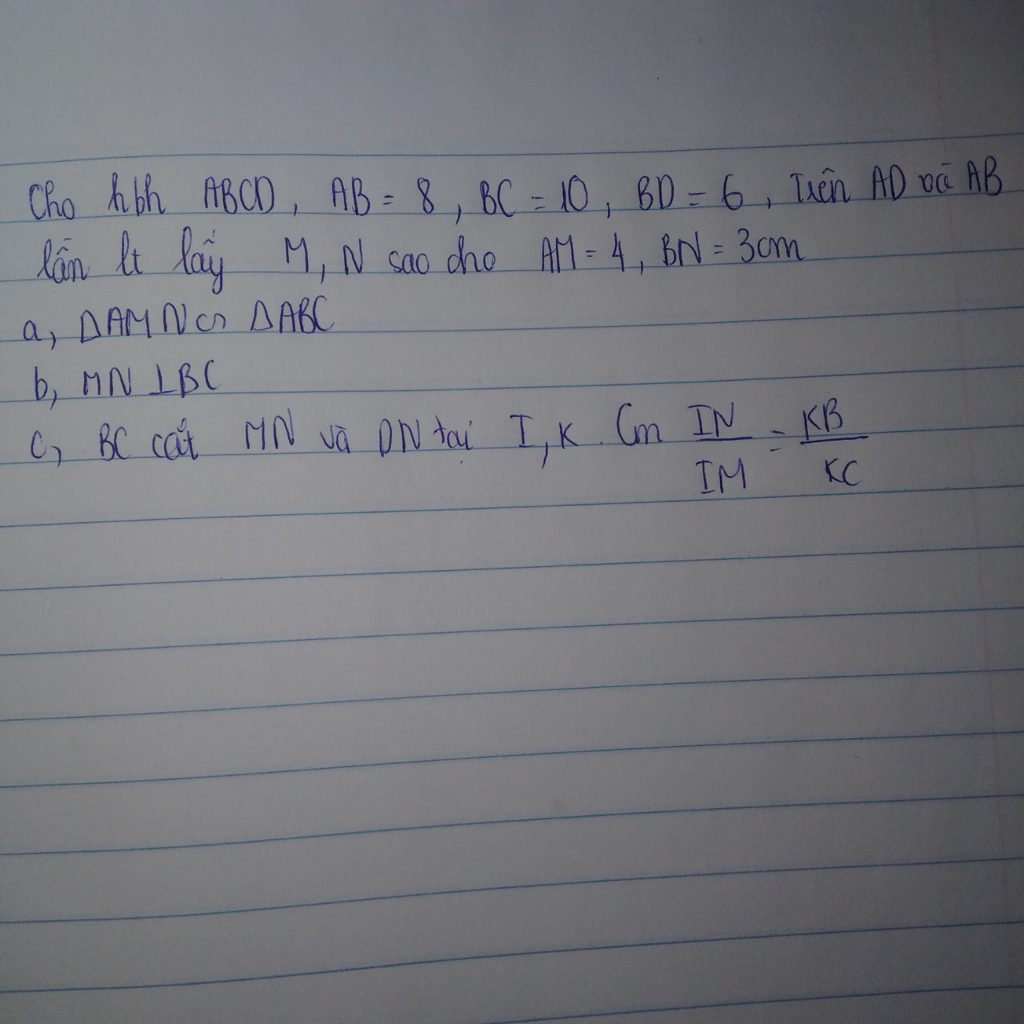 Cho hbh ABCD, AB = 8, BC = 10, BD = 6, Trên AD và AB
lần lt lấy M, N sao cho AM = 4, BN = 3cm
a, ΔAMN ∽ ΔABC
b, MN ⊥ BC
c, BC cắt MN và DN tại I, K. Cm IN/IM = KB/KC